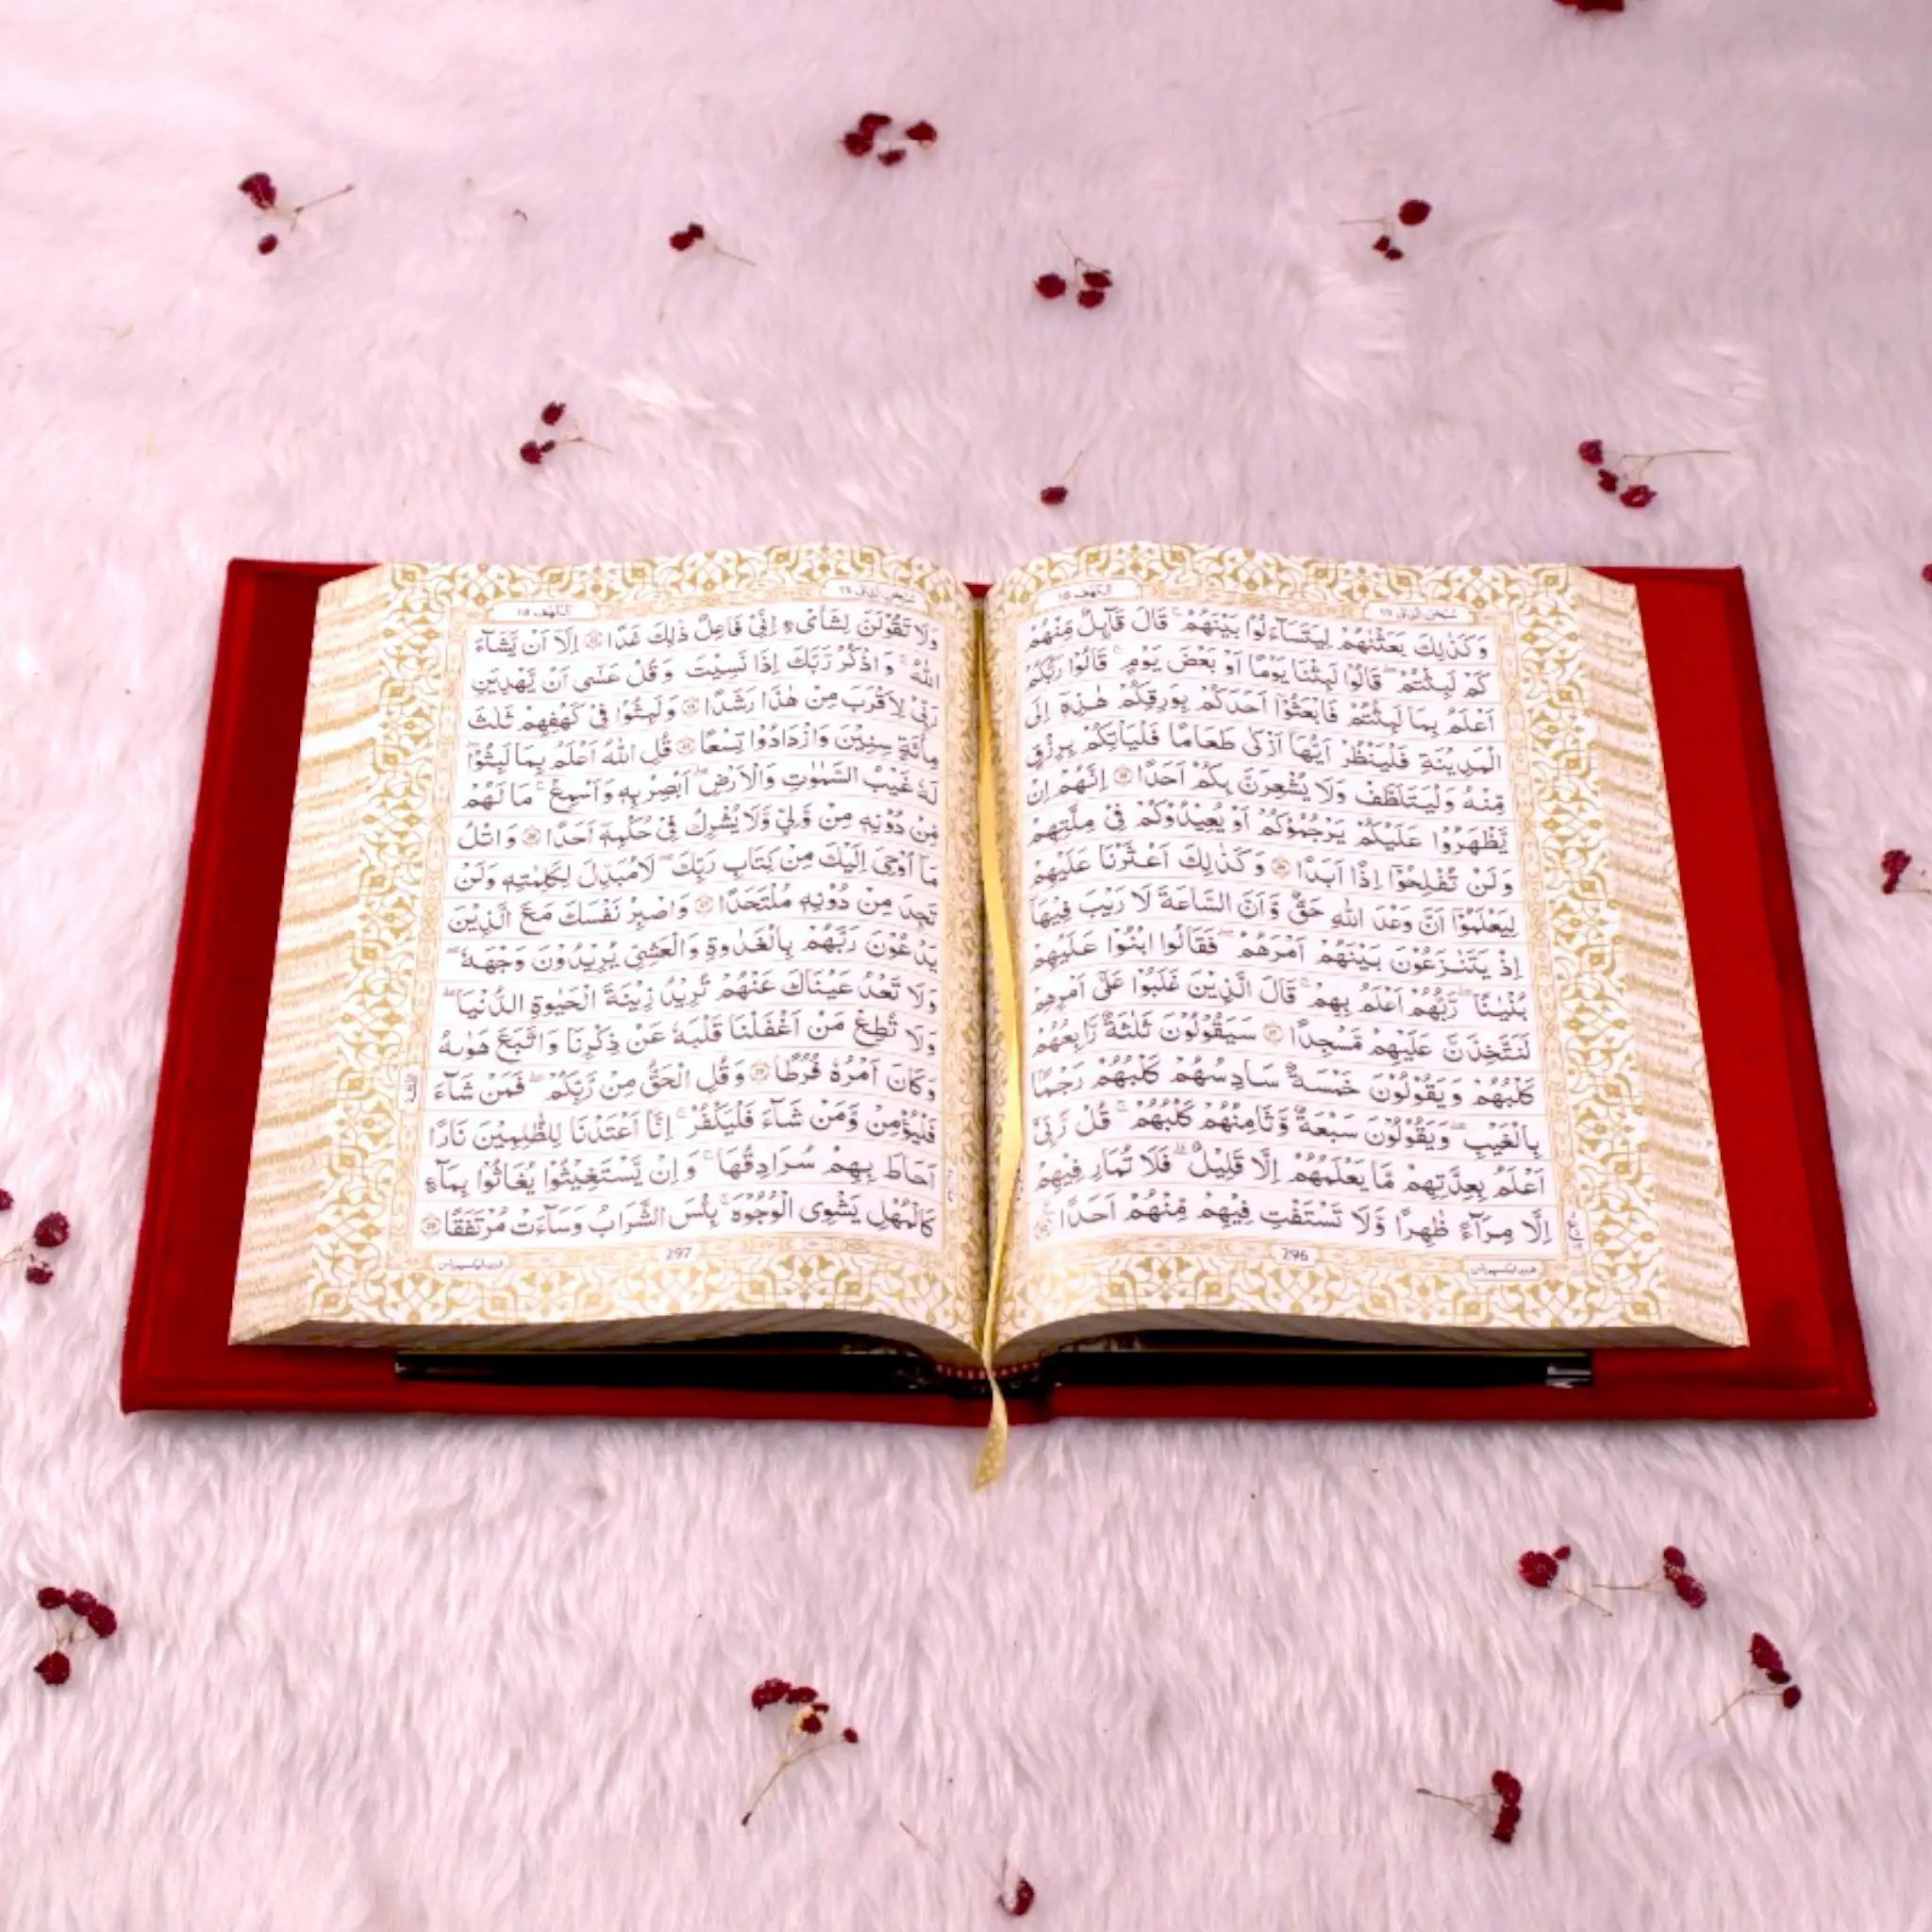 الکهف ١٨
سبحن الذی ١٥
وَكَذٰلِكَ بَعَثْنٰهُمْ لِیَتَسَآءَلُوْا بَیْنَهُمْ ؕ قَالَ قَآىِٕلٌ مِّنْهُمْ
كَمْ لَبِثْتُمْ ؕ قَالُوْا لَبِثْنَا یَوْمًا اَوْ بَعْضَ یَوْمٍ ؕ قَالُوْا رَبُّكُمْ
اَعْلَمُ بِمَا لَبِثْتُمْ فَابْعَثُوْۤا اَحَدَكُمْ بِوَرِقِكُمْ هٰذِهٖۤ اِلَی
الْمَدِیْنَةِ فَلْیَنْظُرْ اَیُّهَاۤ اَزْكٰی طَعَامًا فَلْیَاْتِكُمْ بِرِزْقٍ
مِّنْهُ وَلْیَتَلَطَّفْ وَلَا یُشْعِرَنَّ بِكُمْ اَحَدًا ۝١٩ اِنَّهُمْ اِنْ
یَّظْهَرُوْا عَلَیْكُمْ یَرْجُمُوْكُمْ اَوْ یُعِیْدُوْكُمْ فِیْ مِلَّتِهِمْ
وَلَنْ تُفْلِحُوْۤا اِذًا اَبَدًا ۝٢٠ وَكَذٰلِكَ اَعْثَرْنَا عَلَیْهِمْ
لِیَعْلَمُوْۤا اَنَّ وَعْدَ اللّٰهِ حَقٌّ وَّاَنَّ السَّاعَةَ لَا رَیْبَ فِیْهَا
اِذْ یَتَنَازَعُوْنَ بَیْنَهُمْ اَمْرَهُمْ فَقَالُوا ابْنُوْا عَلَیْهِمْ
بُنْیَانًا ؕ رَبُّهُمْ اَعْلَمُ بِهِمْ ؕ قَالَ الَّذِیْنَ غَلَبُوْا عَلٰۤی اَمْرِهِمْ
لَنَتَّخِذَنَّ عَلَیْهِمْ مَّسْجِدًا ۝٢١ سَیَقُوْلُوْنَ ثَلٰثَةٌ رَّابِعُهُمْ
كَلْبُهُمْ وَیَقُوْلُوْنَ خَمْسَةٌ سَادِسُهُمْ كَلْبُهُمْ رَجْمًۢا
بِالْغَیْبِ ۚ وَیَقُوْلُوْنَ سَبْعَةٌ وَّثَامِنُهُمْ كَلْبُهُمْ ؕ قُلْ رَّبِّیْۤ
اَعْلَمُ بِعِدَّتِهِمْ مَّا یَعْلَمُهُمْ اِلَّا قَلِیْلٌ ۫ فَلَا تُمَارِ فِیْهِمْ
اِلَّا مِرَآءً ظٰهِرًا وَّلَا تَسْتَفْتِ فِیْهِمْ مِّنْهُمْ اَحَدًا ۝٢٢
296
الکهف ١٨
سبحن الذی ١٥
وَلَا تَقُوْلَنَّ لِشَایْءٍ اِنِّیْ فَاعِلٌ ذٰلِكَ غَدًا ۝٢٣ اِلَّاۤ اَنْ یَّشَآءَ
اللّٰهُ ؗ وَاذْكُرْ رَّبَّكَ اِذَا نَسِیْتَ وَقُلْ عَسٰۤی اَنْ یَّهْدِیَنِ
رَبِّیْ لِاَقْرَبَ مِنْ هٰذَا رَشَدًا ۝٢٤ وَلَبِثُوْا فِیْ كَهْفِهِمْ ثَلٰثَ
مِائَةٍ سِنِیْنَ وَازْدَادُوْا تِسْعًا ۝٢٥ قُلِ اللّٰهُ اَعْلَمُ بِمَا لَبِثُوْا ۚ
لَهٗ غَیْبُ السَّمٰوٰتِ وَالْاَرْضِ ؕ اَبْصِرْ بِهٖ وَاَسْمِعْ ؕ مَا لَهُمْ
مِّنْ دُوْنِهٖ مِنْ وَّلِیٍّ ؗ وَّلَا یُشْرِكُ فِیْ حُكْمِهٖۤ اَحَدًا ۝٢٦ وَاتْلُ
مَاۤ اُوْحِیَ اِلَیْكَ مِنْ كِتَابِ رَبِّكَ ؕ لَا مُبَدِّلَ لِكَلِمٰتِهٖ ۫ وَلَنْ
تَجِدَ مِنْ دُوْنِهٖ مُلْتَحَدًا ۝٢٧ وَاصْبِرْ نَفْسَكَ مَعَ الَّذِیْنَ
یَدْعُوْنَ رَبَّهُمْ بِالْغَدٰوةِ وَالْعَشِیِّ یُرِیْدُوْنَ وَجْهَهٗ
وَلَا تَعْدُ عَیْنٰكَ عَنْهُمْ ۚ تُرِیْدُ زِیْنَةَ الْحَیٰوةِ الدُّنْیَا ۚ
وَلَا تُطِعْ مَنْ اَغْفَلْنَا قَلْبَهٗ عَنْ ذِكْرِنَا وَاتَّبَعَ هَوٰىهُ
وَكَانَ اَمْرُهٗ فُرُطًا ۝٢٨ وَقُلِ الْحَقُّ مِنْ رَّبِّكُمْ ۫ فَمَنْ شَآءَ
فَلْیُؤْمِنْ وَّمَنْ شَآءَ فَلْیَكْفُرْ ۙ اِنَّاۤ اَعْتَدْنَا لِلظّٰلِمِیْنَ نَارًا
اَحَاطَ بِهِمْ سُرَادِقُهَا ؕ وَاِنْ یَّسْتَغِیْثُوْا یُغَاثُوْا بِمَآءٍ
كَالْمُهْلِ یَشْوِی الْوُجُوْهَ ؕ بِئْسَ الشَّرَابُ ؕ وَسَآءَتْ مُرْتَفَقًا ۝٢٩
297